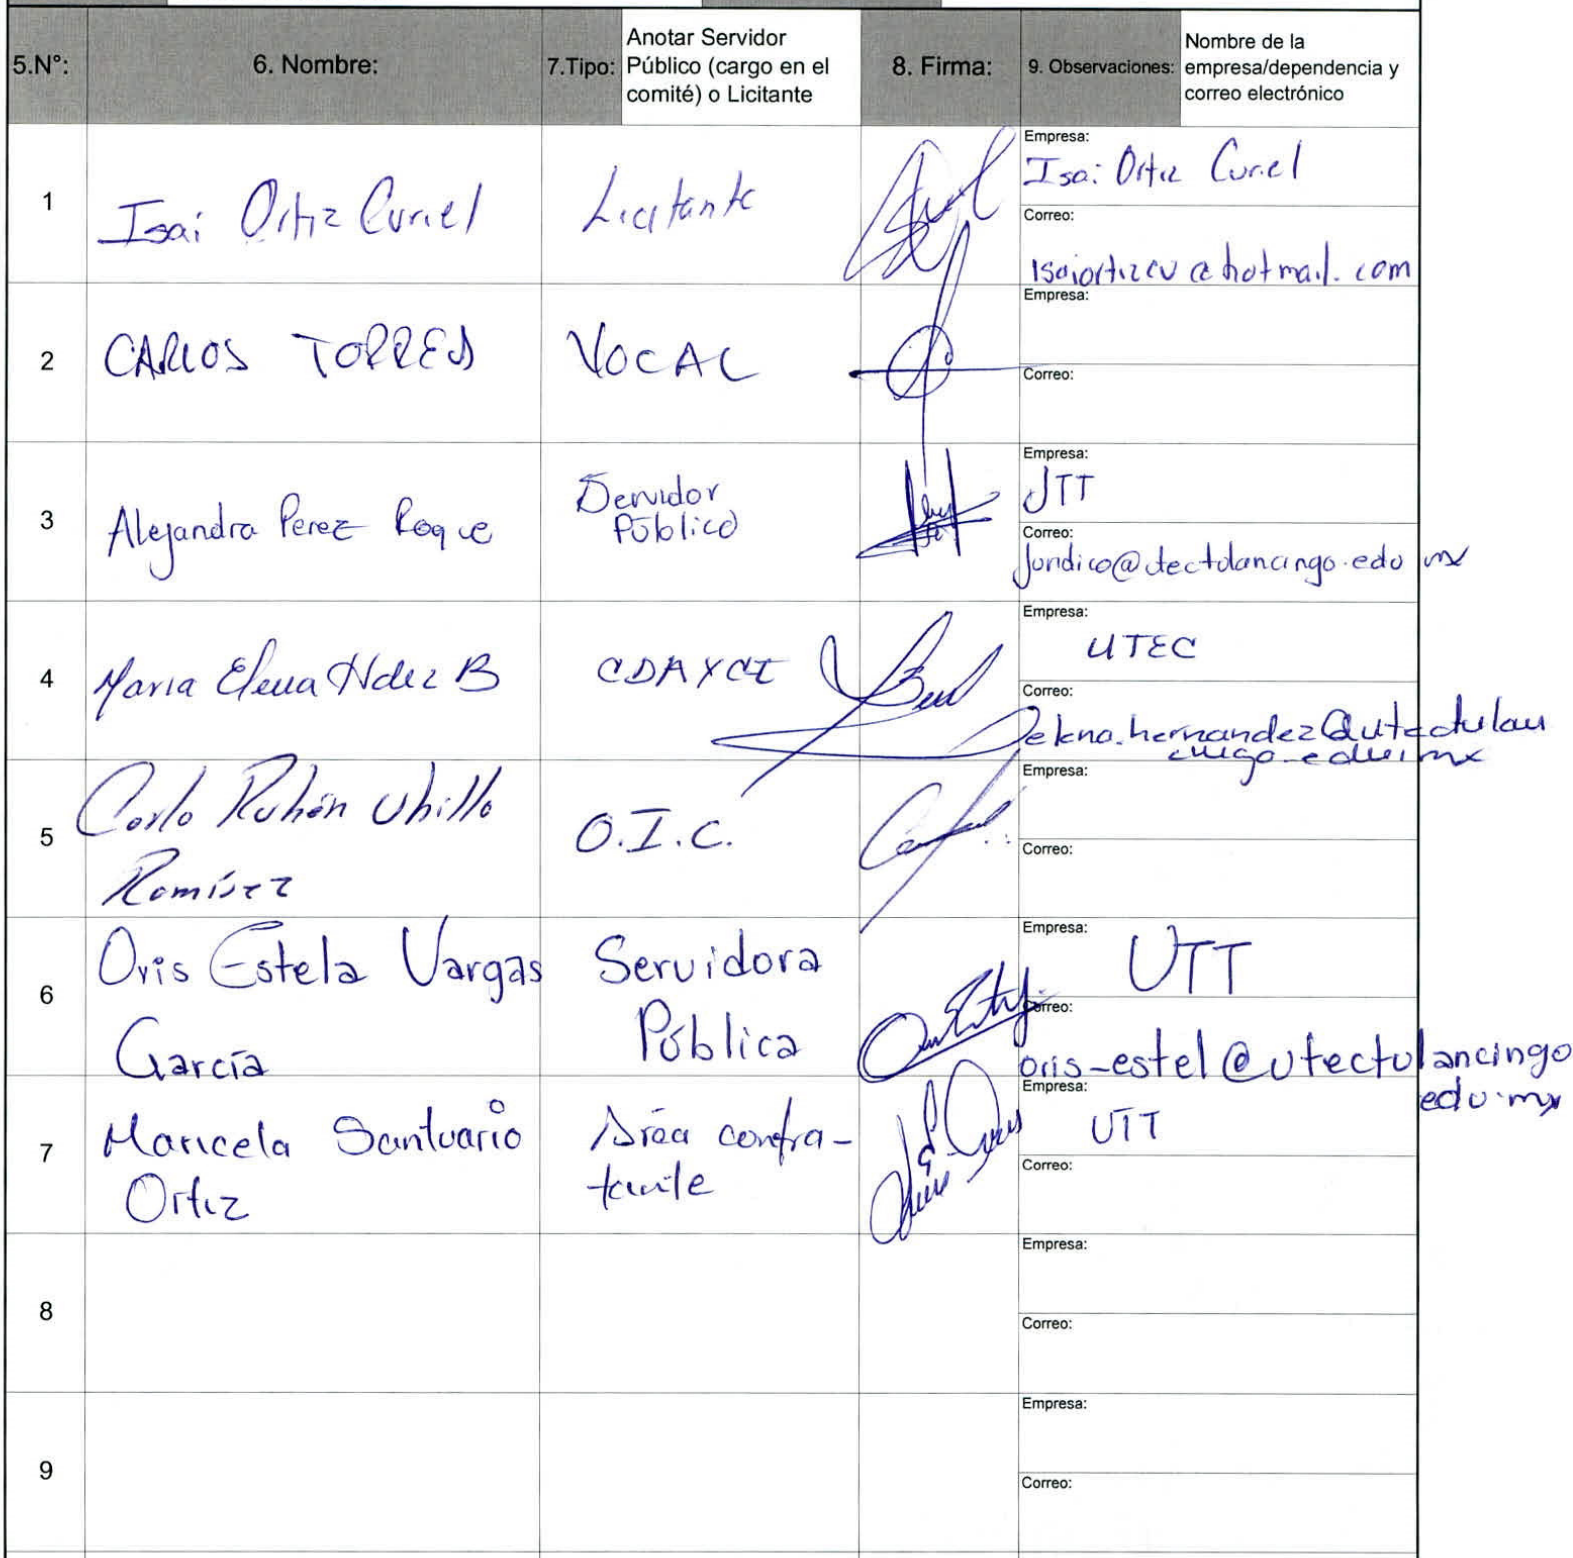 5.N°: 6. Nombre: 7.Tipo: Anotar Servidor Público (cargo en el comité) o Licitante 8. Firma: 9. Observaciones: Nombre de la empresa/dependencia y correo electrónico
1 Isai Ortiz Curiel Licitante
Empresa:
Isai Ortiz Curiel
Correo:
isaiortizcu@hotmail.com
2 CARLOS TORRES VOCAL
Empresa:
Correo:
3 Alejandra Perez Roque Servidor
Público
Empresa:
UTT
Correo:
Juridico@utectulancingo.edu mx
4 Maria Elena Hdez B
Empresa:
UTEC
Correo:
elena.hernandez@utectulan
cingo.edu.mx
5 Carlo Rubén Ubillo
Ramírez
O.I.C.
Empresa:
Correo:
6 Oris Estela Vargas
García
Servidora
Pública
Empresa:
UTT
Correo:
oris-estel@utectulancingo
edu.mx
7 Maricela Santuario
Ortiz
Área contra-
tante
Empresa:
UTT
Correo:
8
Empresa:
Correo:
9
Empresa:
Correo: